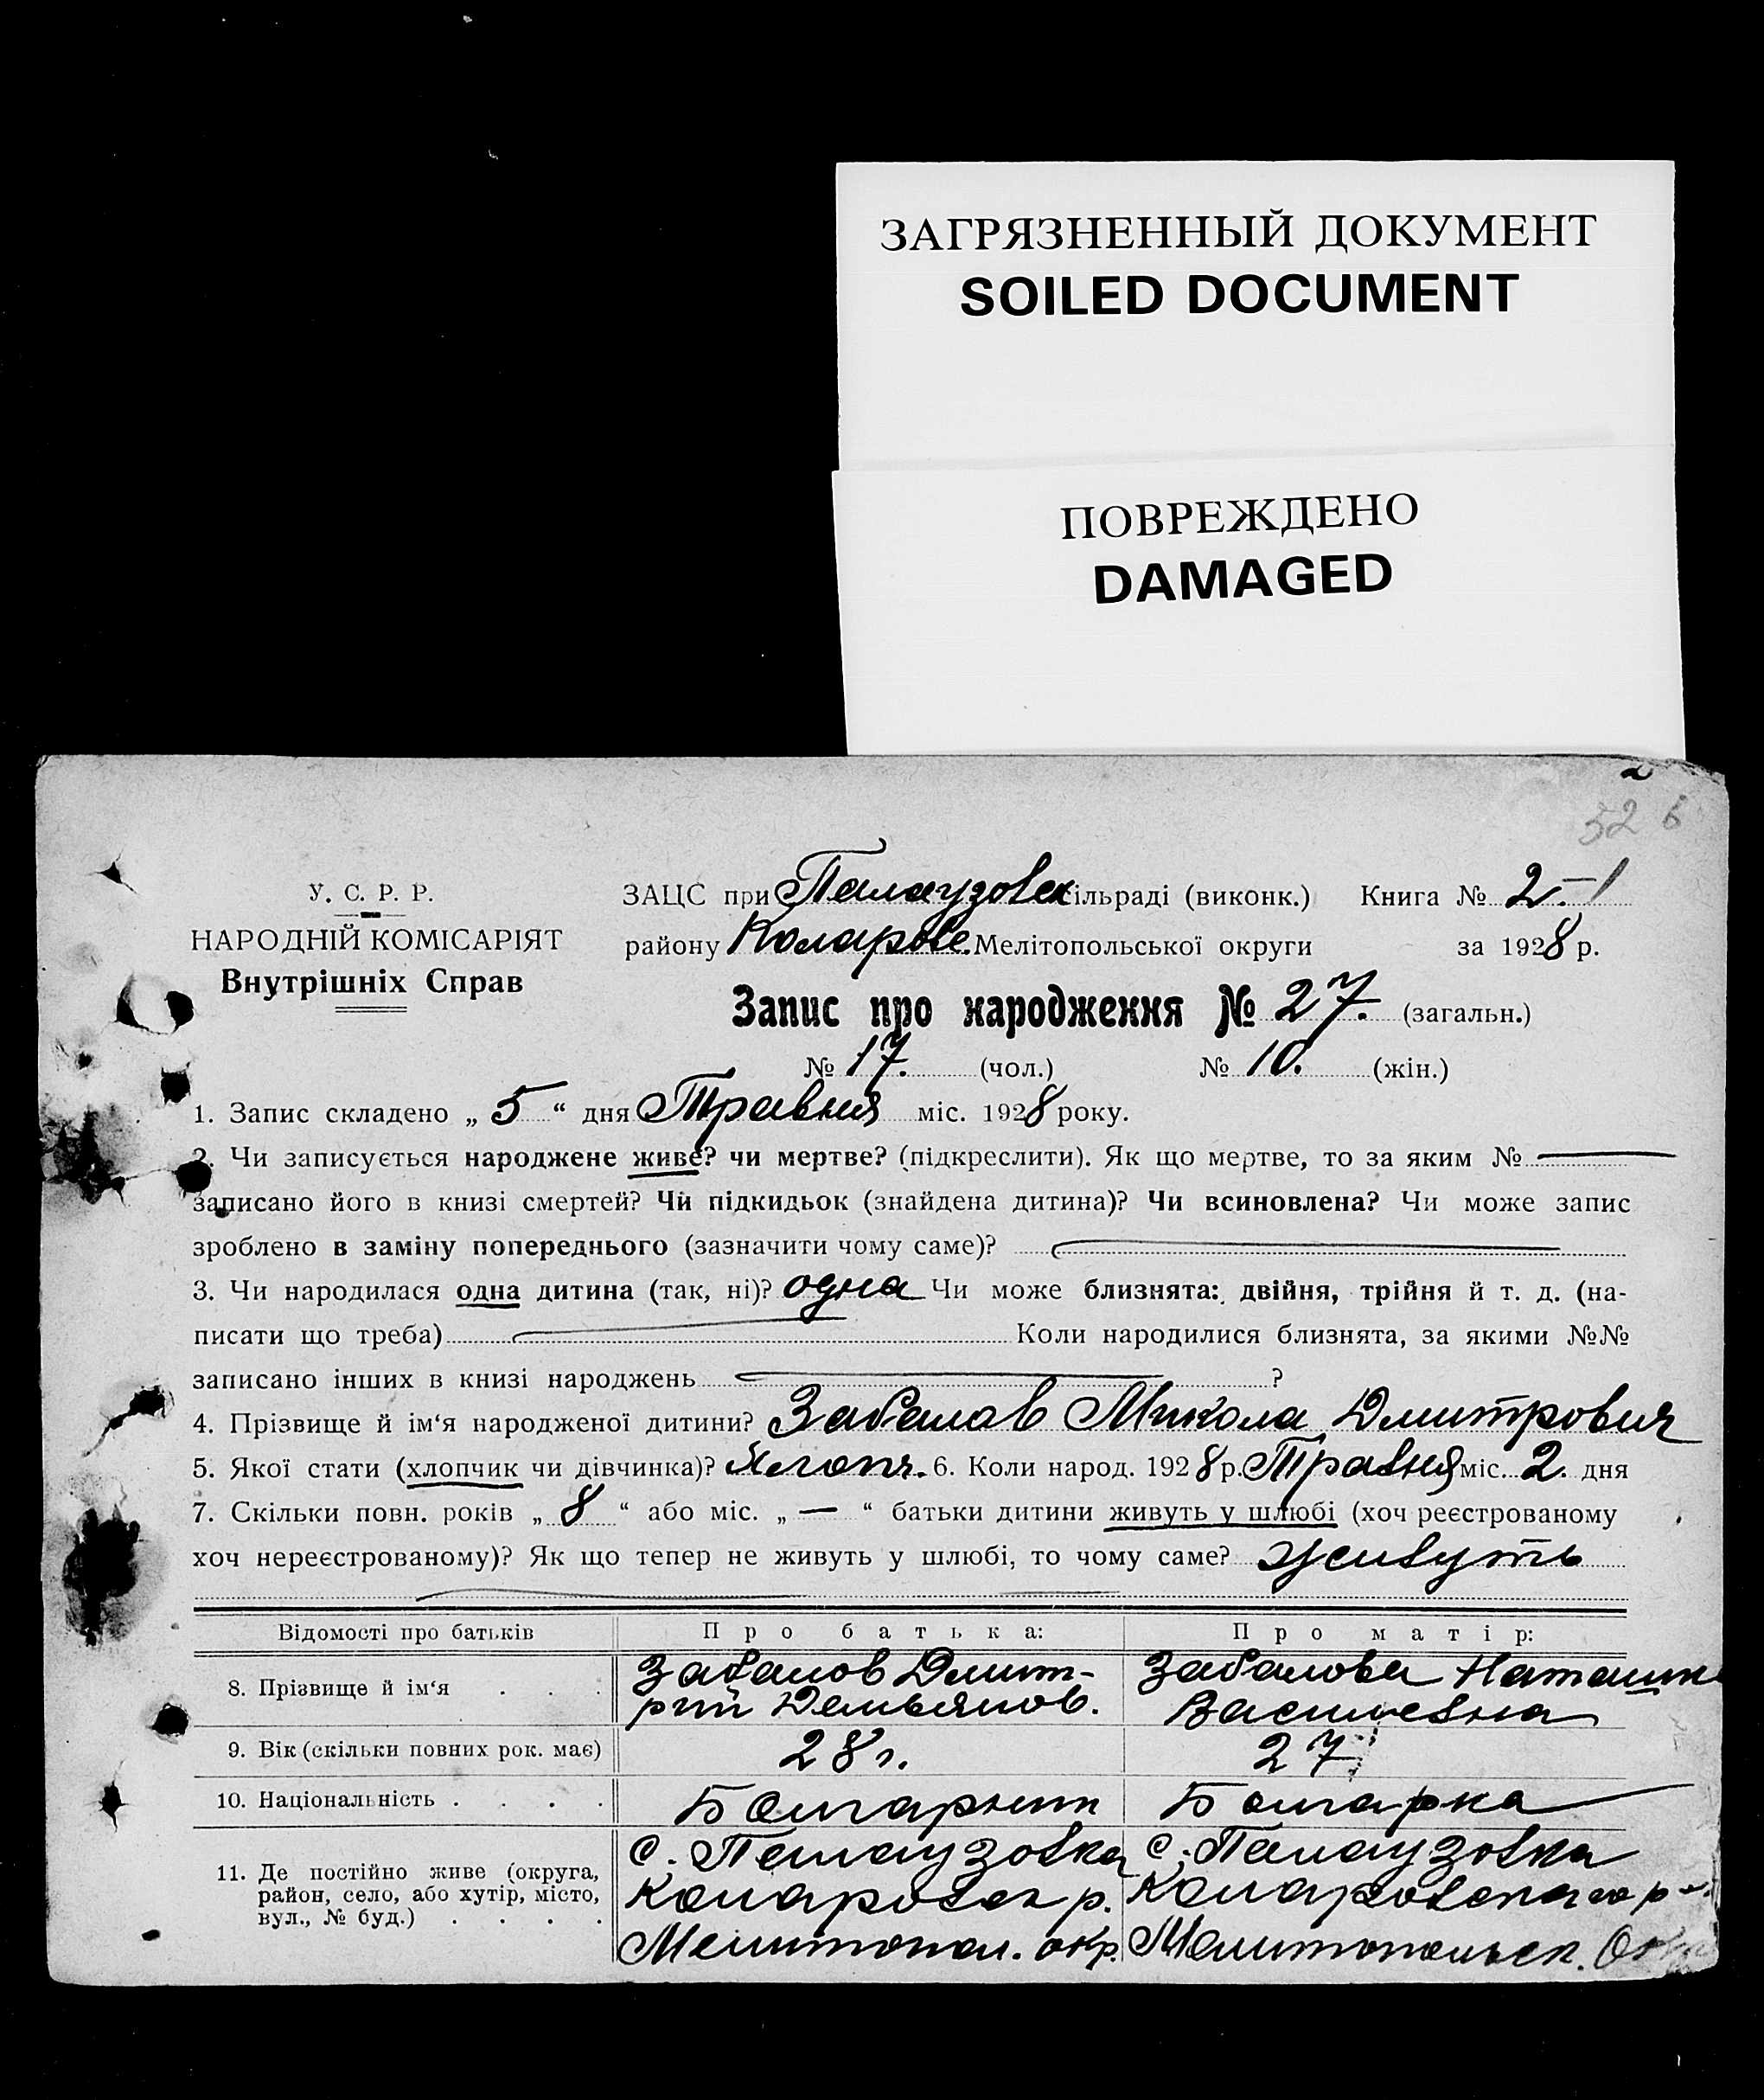 ЗАГРЯЗНЕННЫЙ ДОКУМЕНТ
SOILED DOCUMENT
ПОВРЕЖДЕНО
DAMAGED
52
У. С. Р. Р.
НАРОДНІЙ КОМІСАРІЯТ
Внутрішніх Справ
ЗАЦС при Палаузовск сільраді (виконк.) Книга № 2-1
району Коларовс. Мелітопольської округи за 1928 р.
Запис про народження № 27. (загальн.)
№ 17. (чол.) № 10. (жін.)
1. Запис складено „ 5 “ дня Травня міс. 1928 року.
2. Чи записується народжене живе? чи мертве? (підкреслити). Як що мертве, то за яким № —
записано його в книзі смертей? Чи підкидьок (знайдена дитина)? Чи всиновлена? Чи може запис
зроблено в заміну попереднього (зазначити чому саме)? —
3. Чи народилася одна дитина (так, ні)? одна Чи може близнята: двійня, трійня й т. д. (на-
писати що треба) — Коли народилися близнята, за якими №№
записано інших в книзі народжень — ?
4. Прізвище й ім‘я народженої дитини? Забалов Микола Дмитрович
5. Якої стати (хлопчик чи дівчинка)? 6. Коли народ. 1928 р. Травня міс. 2. дня
7. Скільки повн. років „ 8 “ або міс. „ — “ батьки дитини живуть у шлюбі (хоч реєстрованому
хоч нереєстрованому)? Як що тепер не живуть у шлюбі, то чому саме? живуть
Відомості про батьків Про батька: Про матір:
8. Прізвище й ім‘я . . . Забалов Дмит- Забалова
рий Демьянов. Васильевна
9. Вік (скільки повних рок. має) 28 г. 27
10. Національність . . . . Болгарин Болгарка
11. Де постійно живе (округа, район, село, або хутір, місто, вул., № буд.) . . . . с. Палаузовка с. Палаузовка
Коларовск р. Коларовского р-
Мелитопол. окр. Мелитопольск. Окр